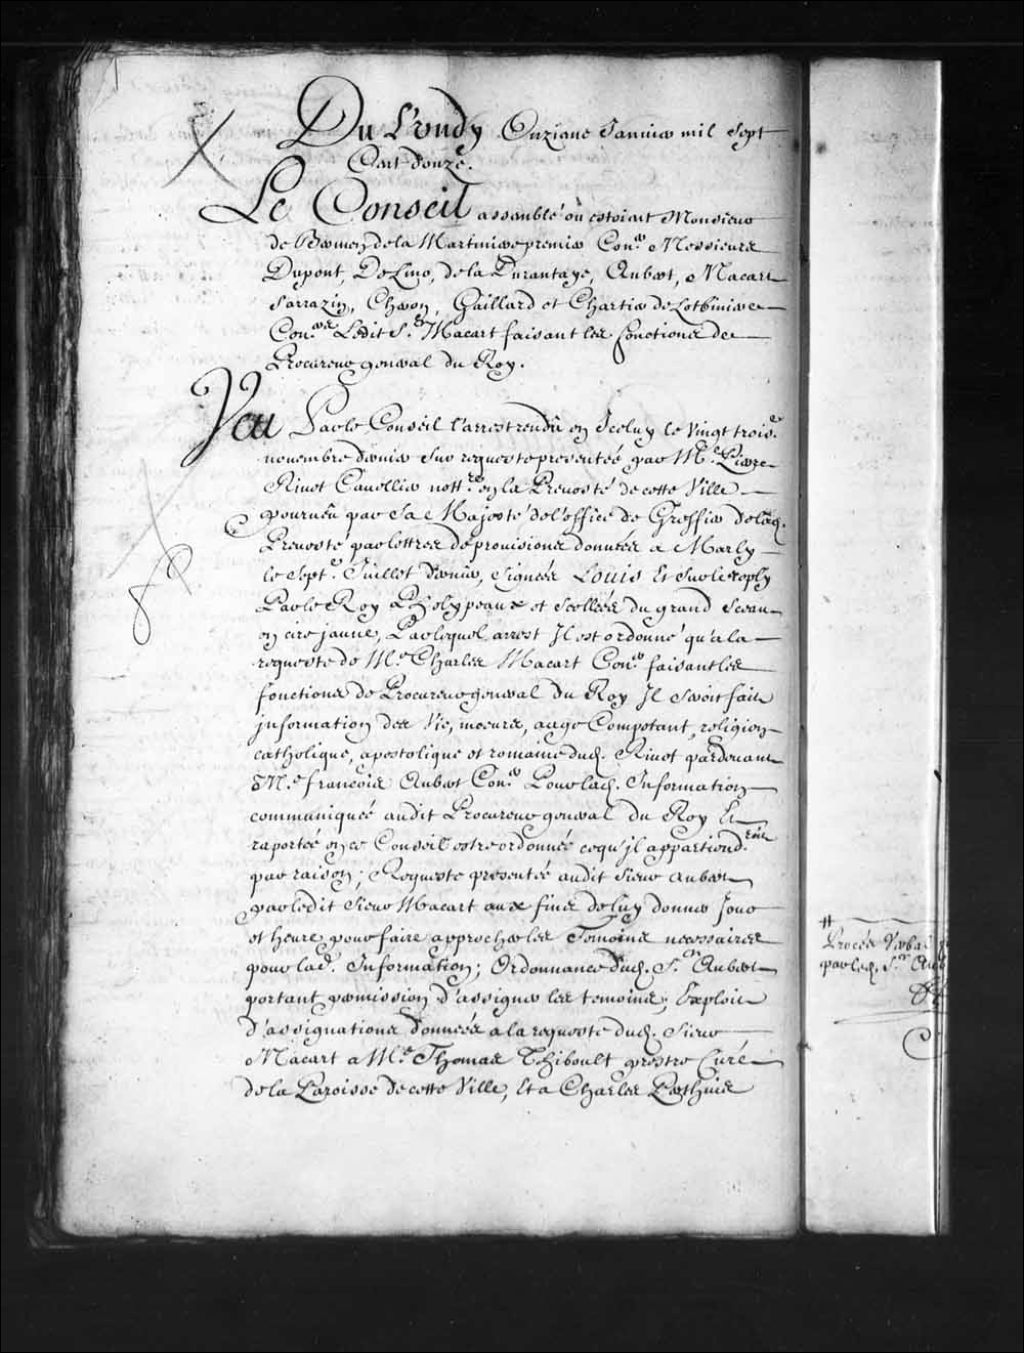 Du Lundy Onziéme Janvier mil Sept
Cent douze.
Le Conseil assemblé où estoient Monsieur
de Bermen de la Martiniere premier Con.er Messieurs
Dupont, De Lino, de la Durantaye, Aubert, Macart
Sarrazin, Cheron, Gaillard et Chartier de Lotbiniere
Con.ers Ledit S.r Macart faisant les fonctions de
Procureur general du Roy.
Veu Par le Conseil l'arrest rendu en Iceluy le vingt trois.e
novembre dernier sur requeste presentée par M.e Pierre
Rivet Cavellier nott.re en la Prevosté de cette Ville
pourvëu par Sa Majesté de l'office de Greffier de lad.
Prevosté par lettres de provisions données a Marly
le Sept.e Juillet dernier, signées Louis Et sur le reply
Par le Roy Phelypeaux et scellées du grand Sceau
en cire jaune, Par lequel arrest Il est ordonné qu'a la
requeste de M.e Charles Macart Con.er faisant les
fonctions de Procureur general du Roy Il seroit fait
jnformation des Vie, moeurs, aage Competant, religion
catholique, apostolique et romaine dud. Rivet pardevant
M.e françois Aubert Con.er Pour lad. Information
communiquée audit Procureur general du Roy Et
raportée en ce Conseil estre ordonnée ce qu'jl appartiend.roit
par raison; Requeste presentée audit Sieur Aubert
par ledit Sieur Macart aux fins de luy donner Jour
et heure pour faire approcher les Temoins necessaires
pour lad. Information; Ordonnance dud. S.r Aubert
portant permission d'assigner les temoins; Exploit
d'assignations données a la requeste dud. Sieur
Macart a M.e Thomas Thiboult prestre Curé
de la Paroisse de cette Ville, Et a Charles Perthuis
# Procés Verbal
par led. S.r Aub